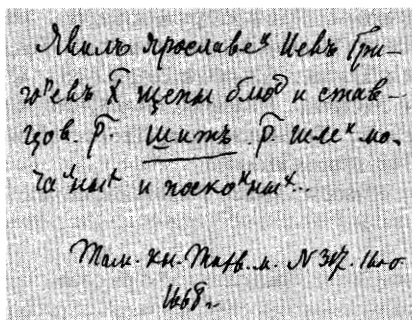 Явилъ ярославец Иевъ Гри-
горевъ х҃ щепы блюд и став-
цов. р҃. шитъ. р҃. шлей мо-
чалных и посконных...
Там. кн. Тихв. м. N
1668 г.